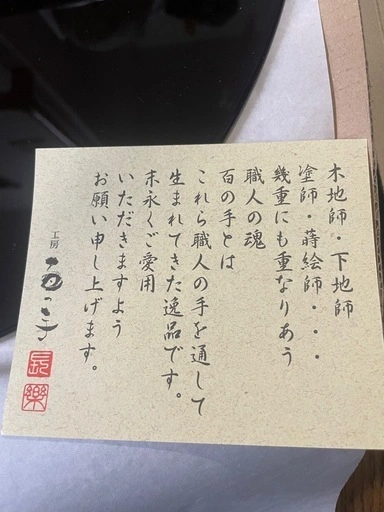 木地師・下地師
塗師・蒔絵師・・・
幾重にも重なりあう
職人の魂
百の手とは
これら職人の手を通して
生まれてきた逸品です。
末永くご愛用
いただきますよう
お願い申し上げます。
工房
百の手
長
樂